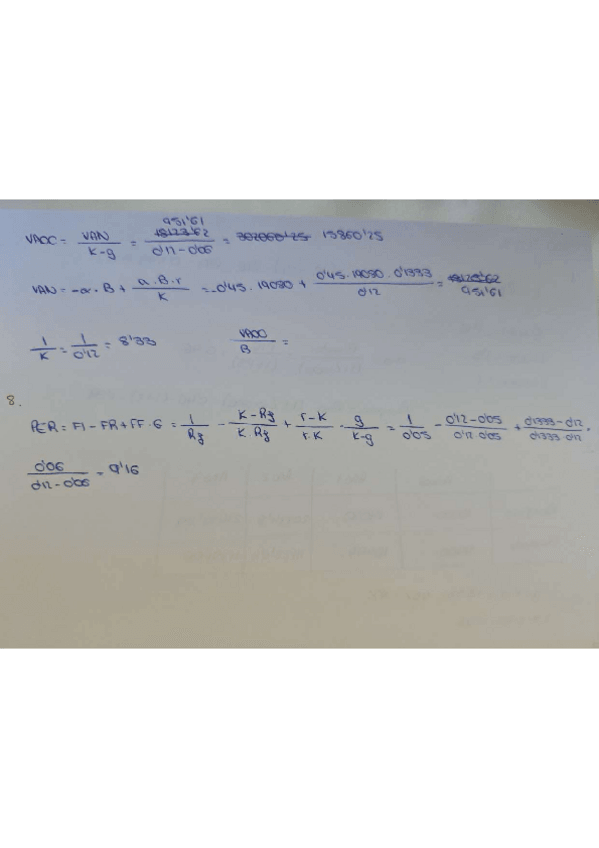 VAOC = VAN / K-g = 951'61 / 0'12-0'06 = 15860'25
VAN = -a·B + a·B·r / K = -0'45·19030 + 0'45·19030·0'1333 / 0'12 = 951'61
1/K = 1/0'12 = 8'33 VAOC / B =
8.
PER = FI - FR + FF·G = 1/Rf - K-Rf / K·Rf + r-K / r·K · g / K-g = 1/0'05 - 0'12-0'05 / 0'12·0'05 + 0'1333-0'12 / 0'1333·0'12 ·
0'06 / 0'12-0'06 = 9'16